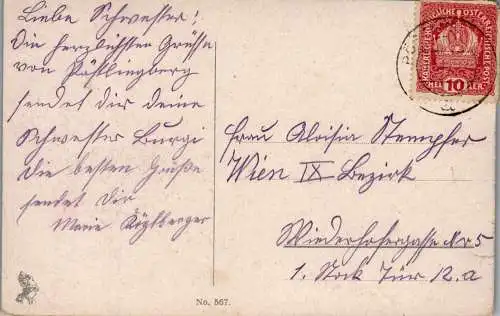 Liebe Schwester!
die herzlichsten Grüsse
von Pöstlingberg
sendet dir deine
Schwester Burgi
die besten Grüße
sendet Dir
Marie Köglberger
Frau Aloisia Stempfer
Wien IX Bezirk
Wiederhofergasse Nr 5
1. Stock Tür 12.a
No. 567.
KAISERLICHE KÖNIGLICHE ÖSTERREICHISCHE POST
10